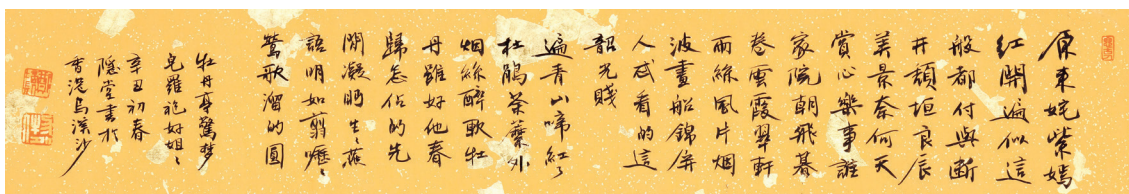 原來姹紫嫣
紅開遍似這
般都付與斷
井頹垣良辰
美景奈何天
賞心樂事誰
家院朝飛暮
卷雲霞翠軒
雨絲風片烟
波畫船錦屏
人忒看的這
韶光賤
遍青山啼紅了
杜鵑荼蘼外
烟絲醉軟牡
丹雖好他春
歸怎佔的先
閒凝眄生生燕
語明如翦嚦嚦
鶯歌溜的圓
牡丹亭驚夢
皂羅袍好姐姐
辛丑初春
隱堂書於
香港烏溪沙